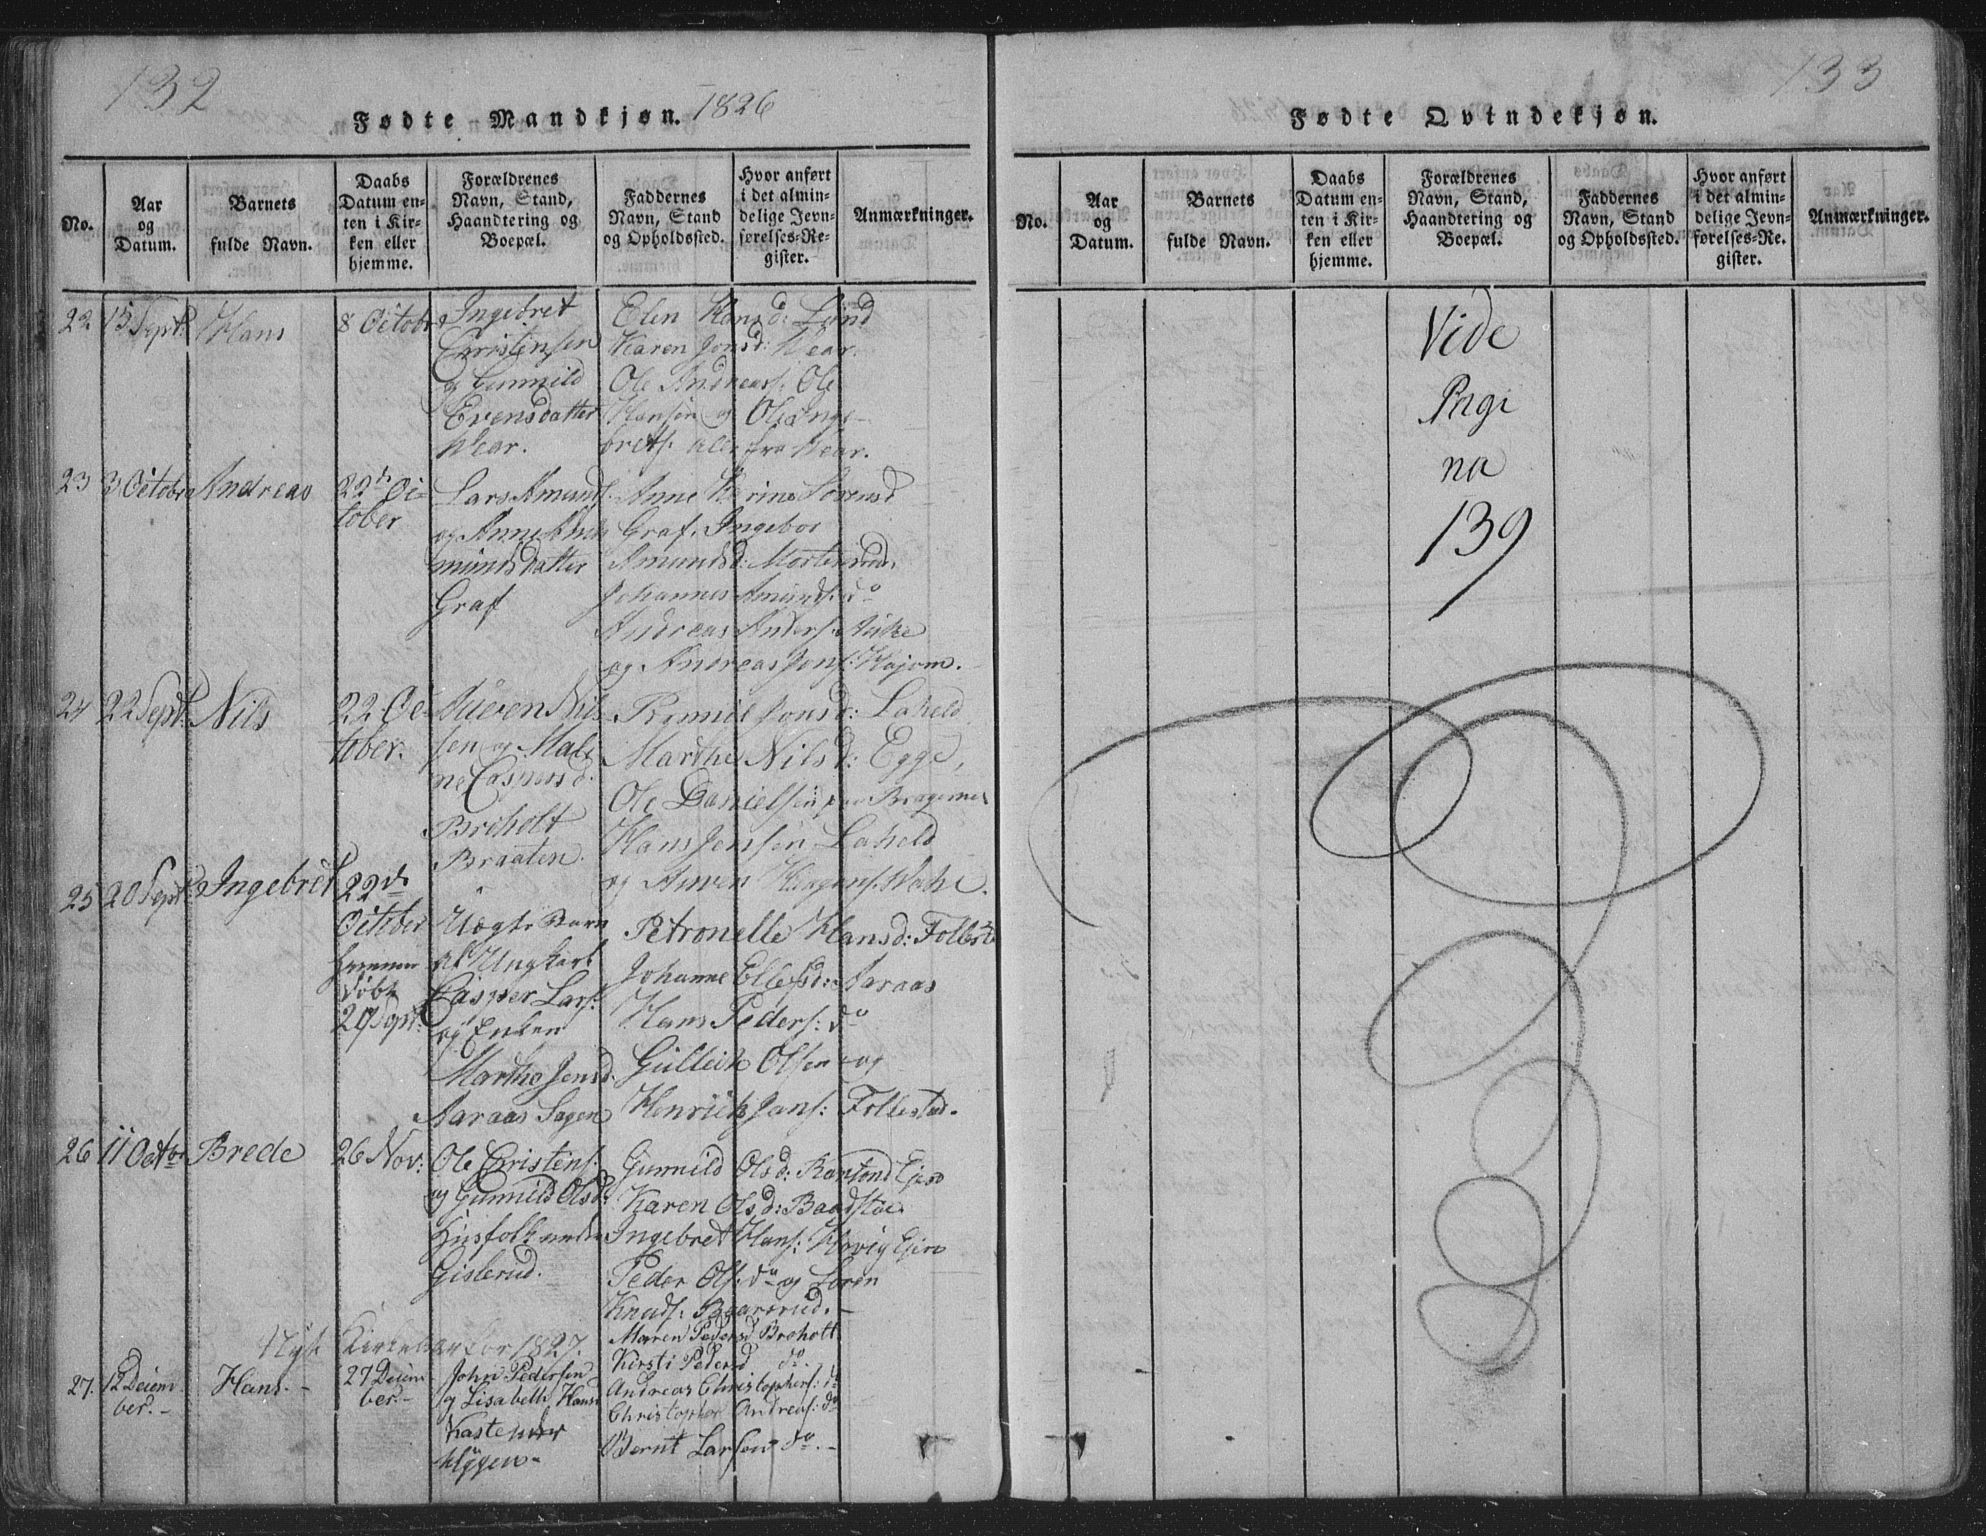 132
Fødte Mandkjøn. 1826
No.
Aar
og
Datum.
Barnets
fulde Navn.
Daabs
Datum en-
ten i Kir-
ken eller
hjemme.
Forældrenes
Navn, Stand,
Haandtering og
Boepæl.
Faddernes
Navn, Stand
og Opholdssted.
Hvor anført
i det almin-
delige Jevn-
førelses-Re-
gister.
Anmærkninger.
22 Hans
8 October
Ingebret
Christensen
og Gunnild
Evensdatter
Wear.
Elen Hansd: Lund
Karen Jonsd: Wear.
Ole Andreas: Ole
Hansen og Ole Inge-
brets. alle fra Wear.
23 3 October Andreas
22 Oc-
tober
Lars Amunds.
og Anne
mundsdatter
Graf
Anne Karine Sørensd
Graf, Ingebor
Amundsd: Mortensrud,
Johannes Amunds: do
Andreas Anders:
og Andreas Jons:
24 22 Sept: Nils
22 Oc-
tober.
Nils
sen og Male
ne Caspersd.
Breholt
Braaten.
Jonsd: Laheld
Marthe Nilsd: Egge,
Ole Danielsen paa Bragernes
Hans Jensen Laheld
og
25 20 Sept: Ingebret
22de
October
hjemme
døbt
Uægte Barn
af Ungkarl
Casper Lars:
og Enken
Marthe Jensd.
Aaraas Sagen
Petronelle Hansd: Follestad
Johanne Ellefsd: Aaraas
Hans Peders: do
Gulleik Olsen og
Henrich Jans: Follestad.
26 11 Octbr Brede
26 Nov:
Ole Cristens:
og Gunnild Olsd:
Husfolk under
Gislerud.
Gunnild Olsd:
Karen Olsd: Baadstøe.
Ingebret Hans:
Peder Ols: do og Søren
Knuds:
Nyt Kirkeaar for 1827.
27. 12 Decem
ber.-
Hans.-
27 Decem
ber.-
John Pedersen
og Lisabeth Hansd
Kasterud
Myggen-
Maren Pedersd Breholt
Kirsti Pedersd do.
Andreas Christophers: do
Christopher Andreas: do
Bernt Larsen do.-
133
Fødte Qvindekjøn.
No.
Aar
og
Datum.
Barnets
fulde Navn.
Daabs
Datum en-
ten i Kir-
ken eller
hjemme.
Forældrenes
Navn, Stand,
Haandtering og
Boepæl.
Faddernes
Navn, Stand
og Opholdssted.
Hvor anført
i det almin-
delige Jevn-
førelses-Re-
gister.
Anmærkninger.
Vide
Pagi
na
139